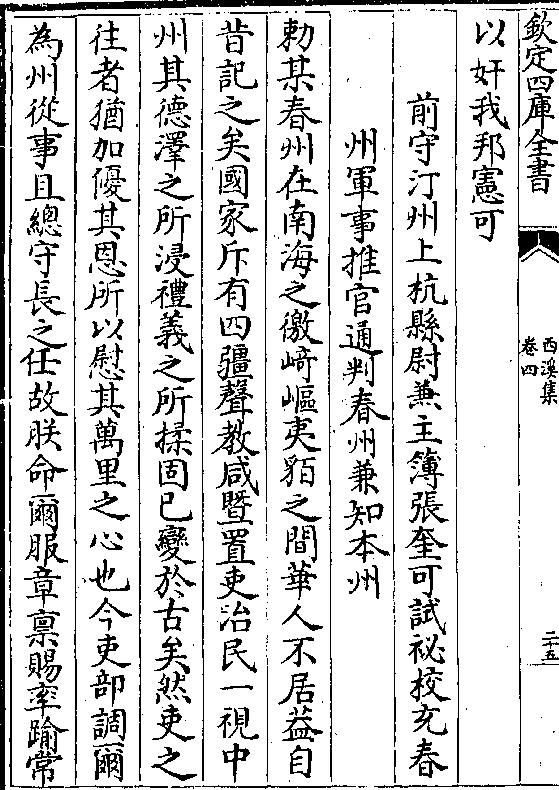 欽定四庫全書
西溪集
卷四
二十五
以奸我邦憲可
前守汀州上杭縣尉兼主簿張奎可試祕校充春
州軍事推官通判春州兼知本州
勅某春州在南海之徼﨑嶇夷貊之間華人不居葢自
昔記之矣國家斥有四疆聲教咸暨置吏治民一視中
州其德澤之所浸禮義之所揉固已變於古矣然吏之
往者猶加優其恩所以慰其萬里之心也今吏部調爾
為州從事且總守長之任故朕命爾服章禀賜率踰常